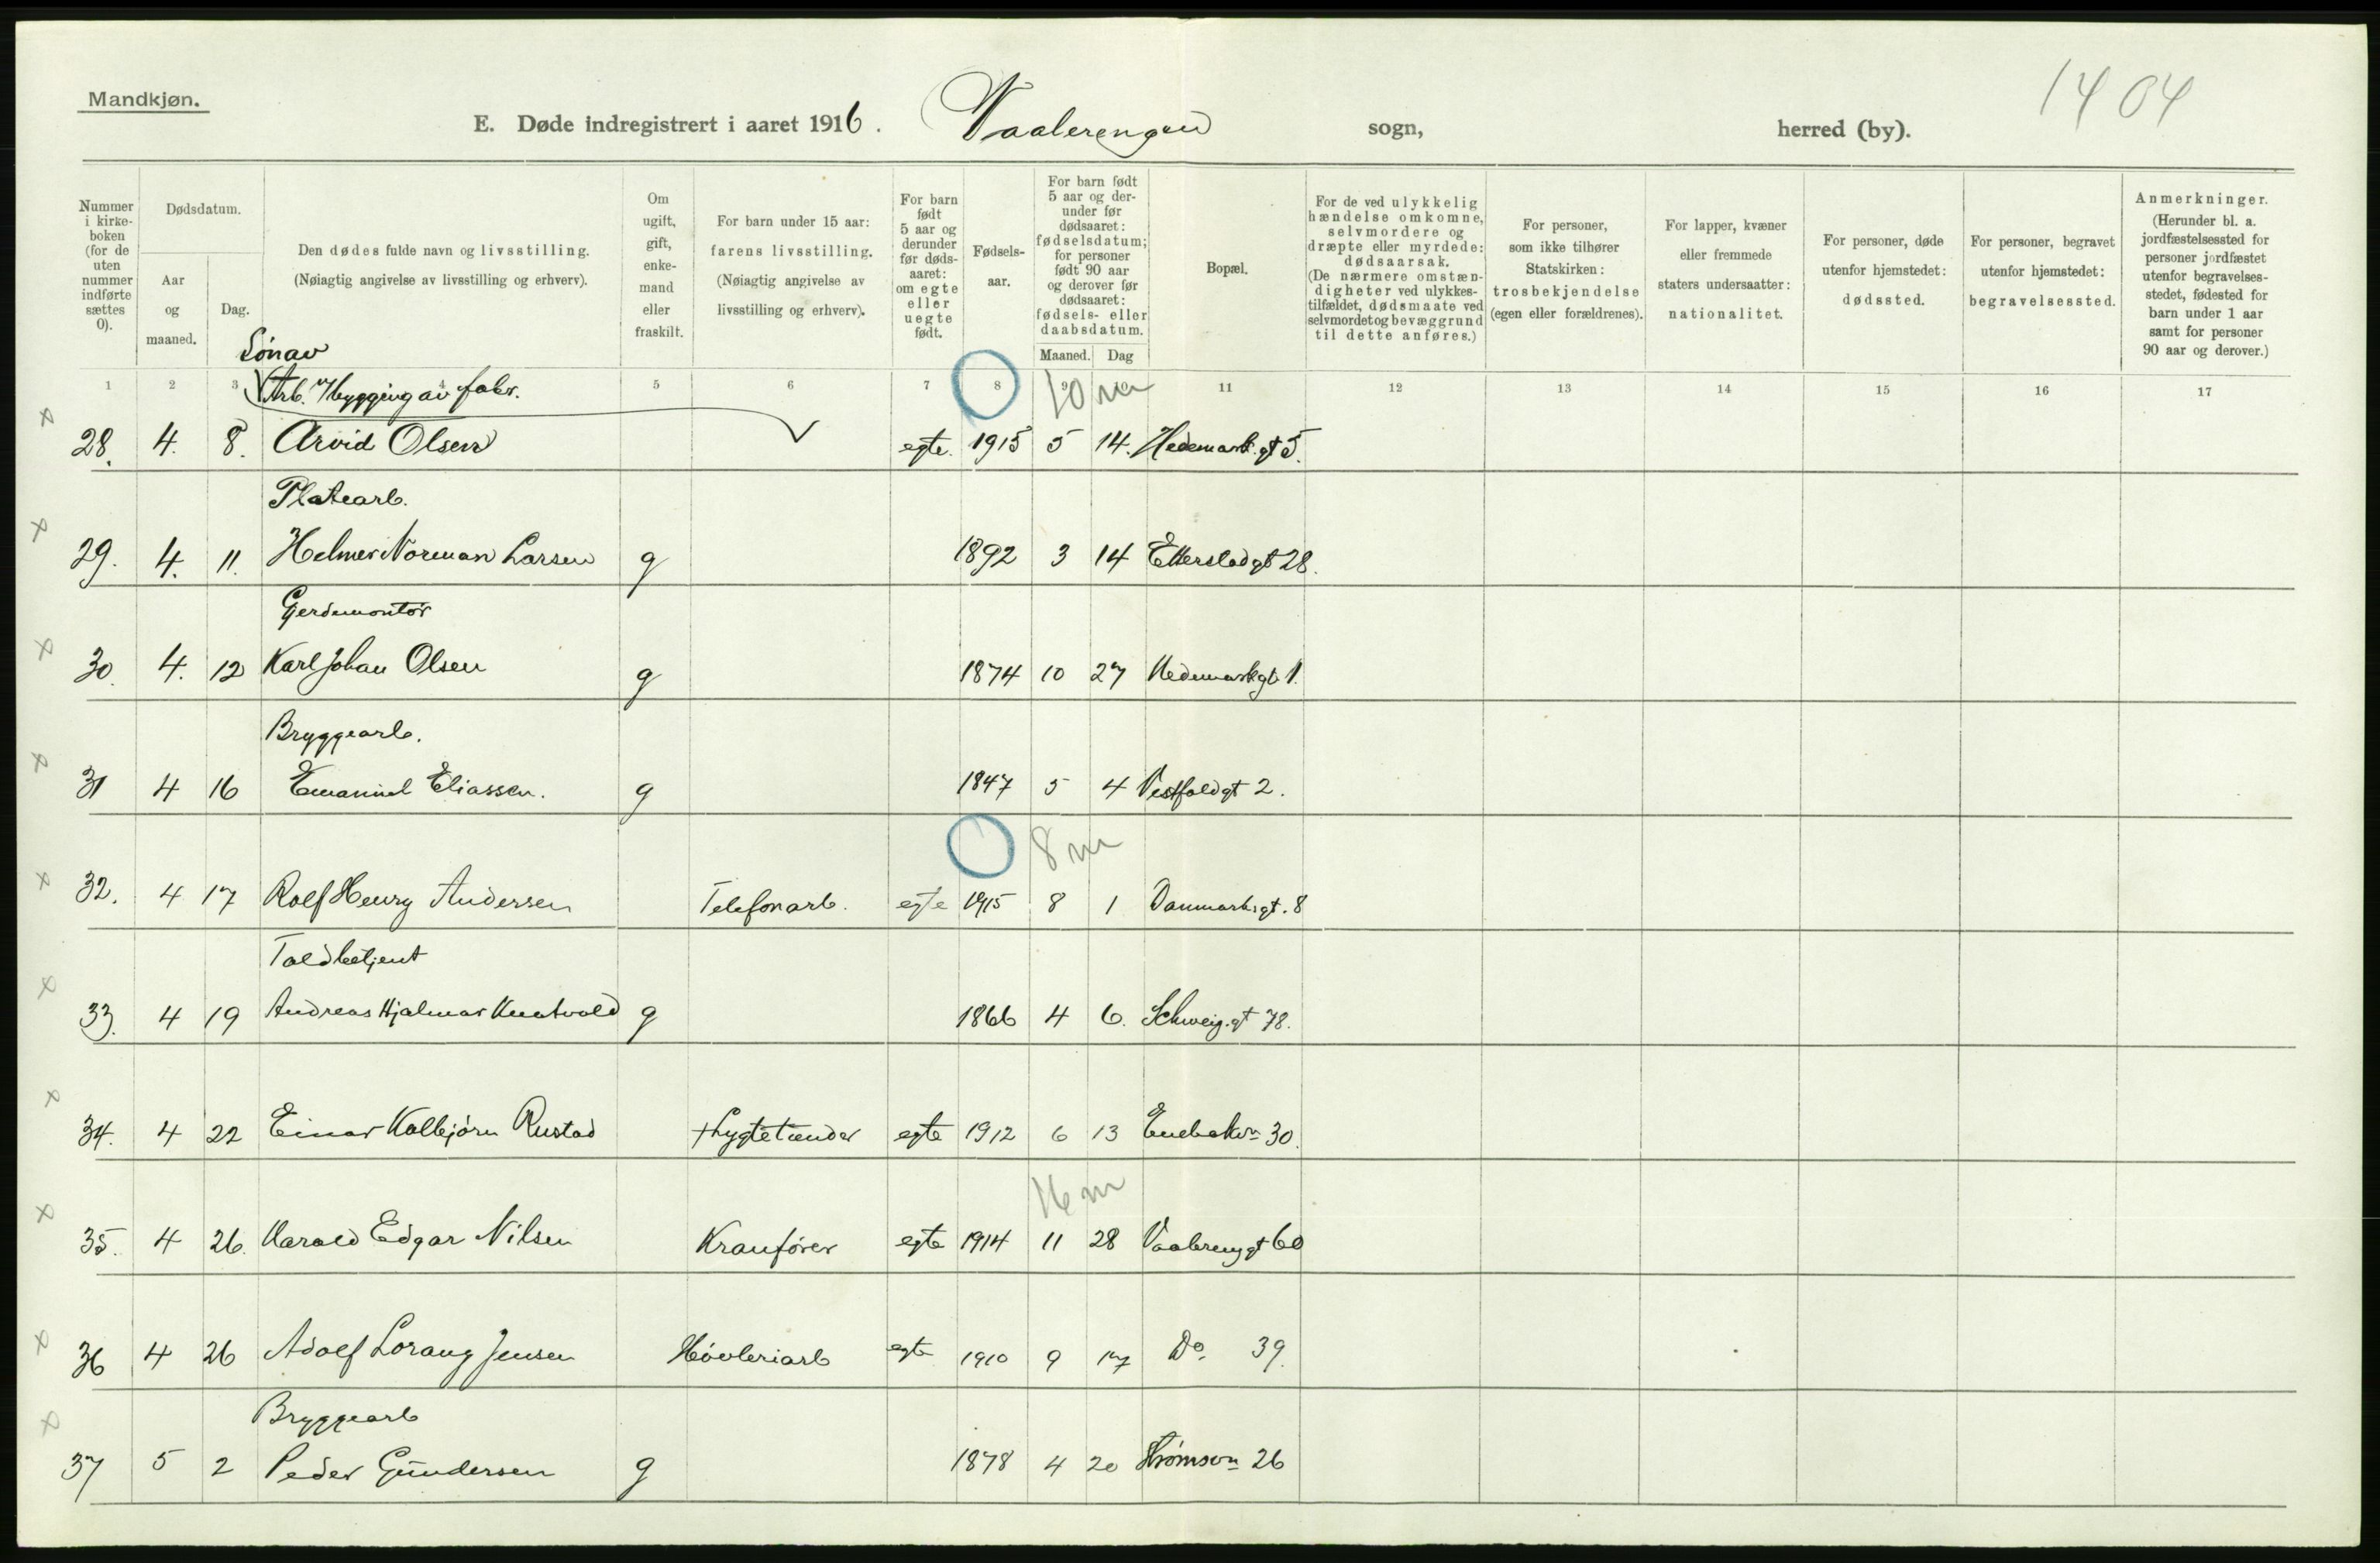 Mandkjøn.
1404
E. Døde indregistrert i aaret 1916. Vaalerengen sogn, herred (by).
Nummer i kirkeboken (for de uten nummer indførte sættes 0).
Dødsdatum.
Aar og maaned.
Dag.
Den dødes fulde navn og livsstilling.
(Nøiagtig angivelse av livsstilling og erhverv).
Om ugift, gift, enkemand eller fraskilt.
For barn under 15 aar: farens livsstilling.
(Nøiagtig angivelse av livsstilling og erhverv).
For barn født 5 aar og derunder før dødsaaret: om egte eller uegte født.
Fødselsaar.
For barn født 5 aar og derunder før dødsaaret: fødselsdatum; for personer født 90 aar og derover før dødsaaret: fødsels- eller daabsdatum.
Maaned. Dag
Bopæl.
For de ved ulykkelig hændelse omkomne, selvmordere og dræpte eller myrdede: dødsaarsak.
(De nærmere omstændigheter ved ulykkestilfældet, dødsmaate ved selvmordet og bevæggrund til dette anføres.)
For personer, som ikke tilhører Statskirken: trosbekjendelse (egen eller forældrenes).
For lapper, kvæner eller fremmede staters undersaatter: nationalitet.
For personer, døde utenfor hjemstedet: dødssted.
For personer, begravet utenfor hjemstedet: begravelsessted.
Anmerkninger.
(Herunder bl. a. jordfæstelsessted for personer jordfæstet utenfor begravelsesstedet, fødested for barn under 1 aar samt for personer 90 aar og derover.)
1 2 3 4 5 6 7 8 9 10 11 12 13 14 15 16 17
Sønav
Arb. v/bygging av fabr.
10 m
28. 4. 8. Arvid Olsen egte. 1915 5 14. Hedemark.gt 5.
Platearb.
29. 4. 11. Helmer Norman Larsen g 1892 3 14 Etterstadgt 28.
Gjerdemontør
30. 4. 12 Karl Johan Olsen g 1874 10 27 Hedemarkgt 1.
Bryggearb.
31 4 16 Emanuel Eliassen. g 1847 5 4 Vestfoldgt 2.
8 m
32. 4 17 Rolf Henry Andersen Telefonarb. egte 1915 8 1 Danmarksgt. 8
Toldbetjent
33. 4 19 Andreas Hjalmar Knatvold g 1866 4 6. Schweig.gt 78.
34. 4 22 Einar Kolbjørn Rustad Lygtetænder egte 1912 6 13 Enebakvn 30.
16 m
35. 4 26. Harald Edgar Nilsen Kranfører egte 1914 11 28 Vaalerenggt 60
36 4 26 Adolf Lorang Jensen Høvleriarb egte 1910 9 17 Do. 39.
Bryggearb
37 5 2 Peder Gundersen g 1878 4 20 Strømsvn 26